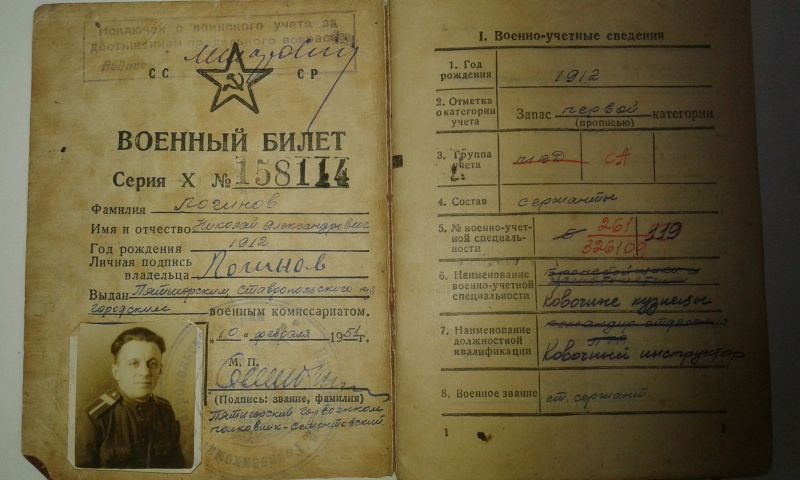 Исключен с воинского учета за
достижением
СС СР
ВОЕННЫЙ БИЛЕТ
Серия X № 158114
Фамилия Логинов
Имя и отчество Николай Александрович
Год рождения 1912
Личная подпись
владельца Логинов
Выдан Пятигорским Ставропольского
городским военным комиссариатом.
„10" февраля 1951 г.
М. П.
(Подпись: звание, фамилия)
Пятигорский горвоенком
полковник
I. Военно-учетные сведения
1. Год
рождения 1912
2. Отметка
о категории
учета Запас первой категории
(прописью)
3. Группа
учета СА
4. Состав сержанты
5. № военно-учет-
ной специаль-
ности 261 119
326109
6. Наименование
военно-учетной
специальности Ковочные кузнецы
7. Наименование
должностной
квалификации Ковочный инструктор
8. Военное звание ст. сержант.
1 1